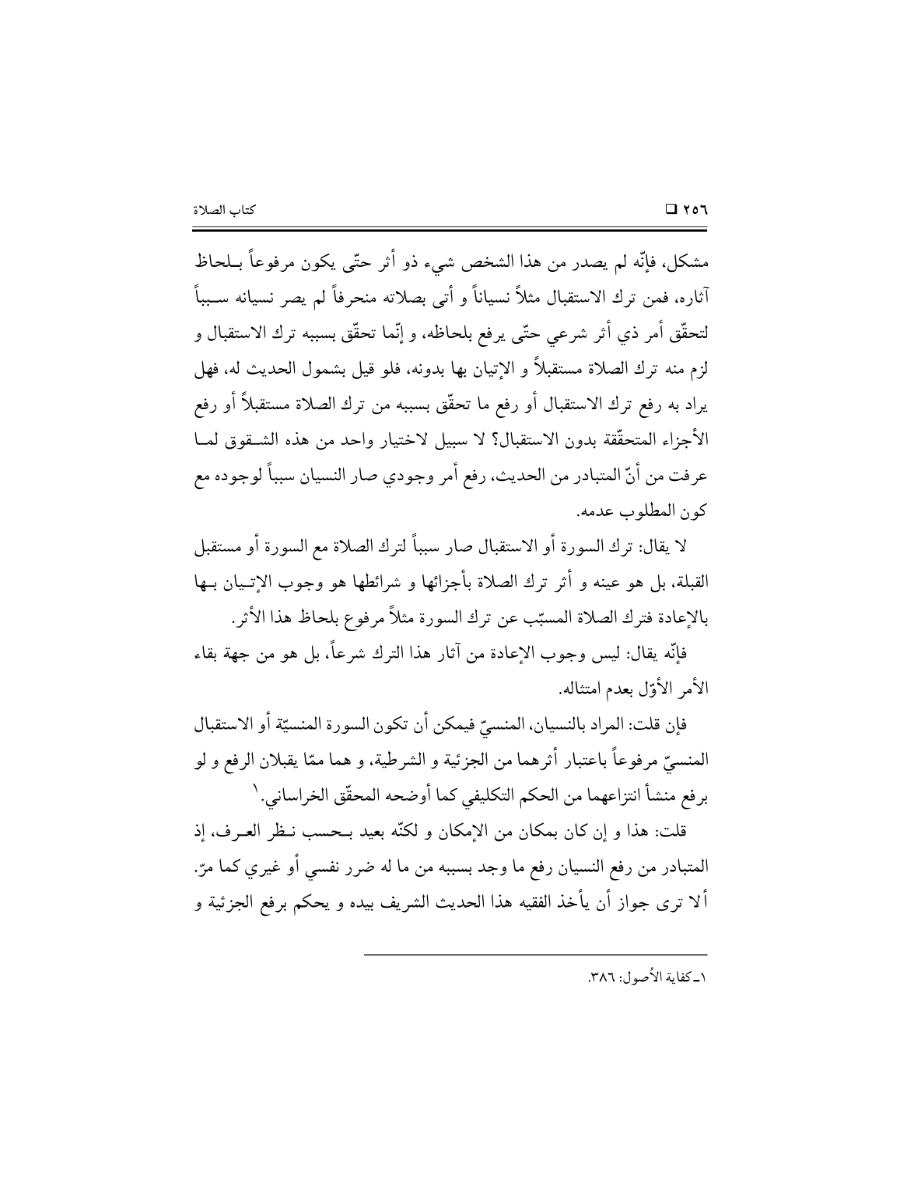 ٢٥٦ □ كتاب الصلاة
مشكل، فإنّه لم يصدر من هذا الشخص شيء ذو أثر حتّى يكون مرفوعاً بـلحاظ
آثاره، فمن ترك الاستقبال مثلاً نسياناً و أتى بصلاته منحرفاً لم يصر نسيانه سـبباً
لتحقّق أمر ذي أثر شرعي حتّى يرفع بلحاظه، و إنّما تحقّق بسببه ترك الاستقبال و
لزم منه ترك الصلاة مستقبلاً و الإتيان بها بدونه، فلو قيل بشمول الحديث له، فهل
يراد به رفع ترك الاستقبال أو رفع ما تحقّق بسببه من ترك الصلاة مستقبلاً أو رفع
الأجزاء المتحقّقة بدون الاستقبال؟ لا سبيل لاختيار واحد من هذه الشـقوق لمـا
عرفت من أنّ المتبادر من الحديث، رفع أمر وجودي صار النسيان سبباً لوجوده مع
كون المطلوب عدمه.
لا يقال: ترك السورة أو الاستقبال صار سبباً لترك الصلاة مع السورة أو مستقبل
القبلة، بل هو عينه و أثر ترك الصلاة بأجزائها و شرائطها هو وجوب الإتـيان بـها
بالإعادة فترك الصلاة المسبّب عن ترك السورة مثلاً مرفوع بلحاظ هذا الأثر.
فإنّه يقال: ليس وجوب الإعادة من آثار هذا الترك شرعاً، بل هو من جهة بقاء
الأمر الأوّل بعدم امتثاله.
فإن قلت: المراد بالنسيان، المنسيّ فيمكن أن تكون السورة المنسيّة أو الاستقبال
المنسيّ مرفوعاً باعتبار أثرهما من الجزئية و الشرطية، و هما ممّا يقبلان الرفع و لو
برفع منشأ انتزاعهما من الحكم التكليفي كما أوضحه المحقّق الخراساني.١
قلت: هذا و إن كان بمكان من الإمكان و لكنّه بعيد بـحسب نـظر العـرف، إذ
المتبادر من رفع النسيان رفع ما وجد بسببه من ما له ضرر نفسي أو غيري كما مرّ.
ألا ترى جواز أن يأخذ الفقيه هذا الحديث الشريف بيده و يحكم برفع الجزئية و
١ـ كفاية الأصول: ٣٨٦.